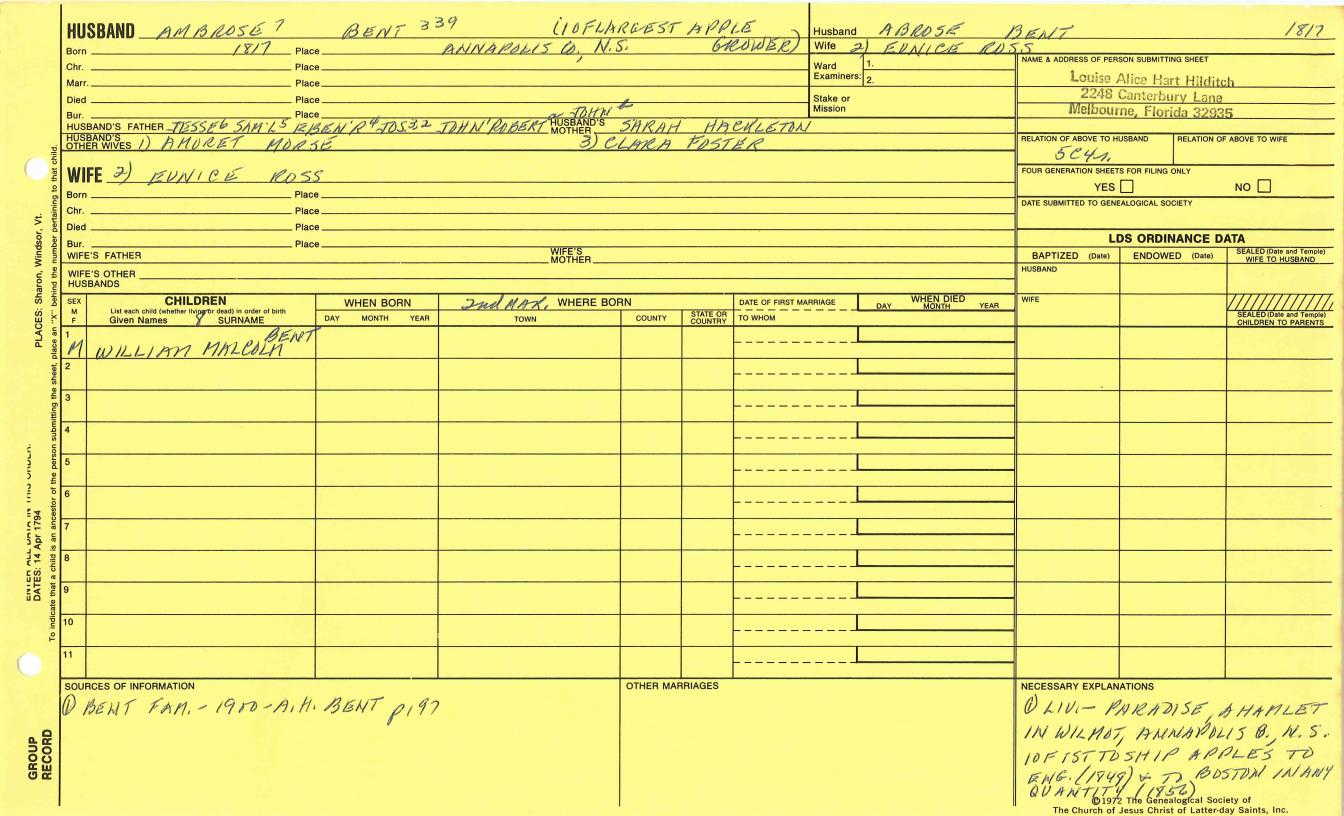 HUSBAND AMBROSE 7 BENT 339 (1 OF LARGEST APPLE GROWER)
Born 1817 Place ANNAPOLIS CO, N.S.
Chr. Place
Marr. Place
Died Place
Bur. Place
HUSBAND'S FATHER JESSE6 SAM'L5 EBEN'R4 JOS3,2 JOHN' ROBERT a JOHN b HUSBAND'S MOTHER SARAH HACKLETON
HUSBAND'S OTHER WIVES 1) AMORET MORSE 3) CLARA FOSTER
WIFE 2) EUNICE ROSS
Born Place
Chr. Place
Died Place
Bur. Place
WIFE'S FATHER WIFE'S MOTHER
WIFE'S OTHER HUSBANDS
Husband ABROSE BENT 1817
Wife 2) EUNICE ROSS
Ward Examiners: 1.
2.
Stake or Mission
NAME & ADDRESS OF PERSON SUBMITTING SHEET
Louise Alice Hart Hilditch
2248 Canterbury Lane
Melbourne, Florida 32935
RELATION OF ABOVE TO HUSBAND RELATION OF ABOVE TO WIFE
5C4r.
FOUR GENERATION SHEETS FOR FILING ONLY
YES NO
DATE SUBMITTED TO GENEALOGICAL SOCIETY
LDS ORDINANCE DATA
BAPTIZED (Date) ENDOWED (Date) SEALED (Date and Temple) WIFE TO HUSBAND
HUSBAND
WIFE
SEALED (Date and Temple) CHILDREN TO PARENTS
SEX M F
CHILDREN
List each child (whether living or dead) in order of birth
Given Names 8 SURNAME
WHEN BORN
DAY MONTH YEAR
2nd MAR. WHERE BORN
TOWN COUNTY STATE OR COUNTRY
DATE OF FIRST MARRIAGE
TO WHOM
WHEN DIED
DAY MONTH YEAR
1 M WILLIAM MALCOLM BENT
2
3
4
5
6
7
8
9
10
11
SOURCES OF INFORMATION
① BENT FAM. - 1900 - A.H. BENT p197
OTHER MARRIAGES
NECESSARY EXPLANATIONS
① LIV.- PARADISE, A HAMLET
IN WILMOT, ANNAPOLIS CO., N.S.
1 OF 1ST TO SHIP APPLES TO
ENG. (1849) & TO BOSTON IN ANY
QUANTITY (1856)
©1972 The Genealogical Society of
The Church of Jesus Christ of Latter-day Saints, Inc.
PLACES: Sharon, Windsor, Vt.
To indicate that a child is an ancestor of the person submitting the sheet, place an "X" behind the number pertaining to that child.
ENTER ALL DATA IN THIS ORDER:
DATES: 14 Apr 1794
GROUP
RECORD